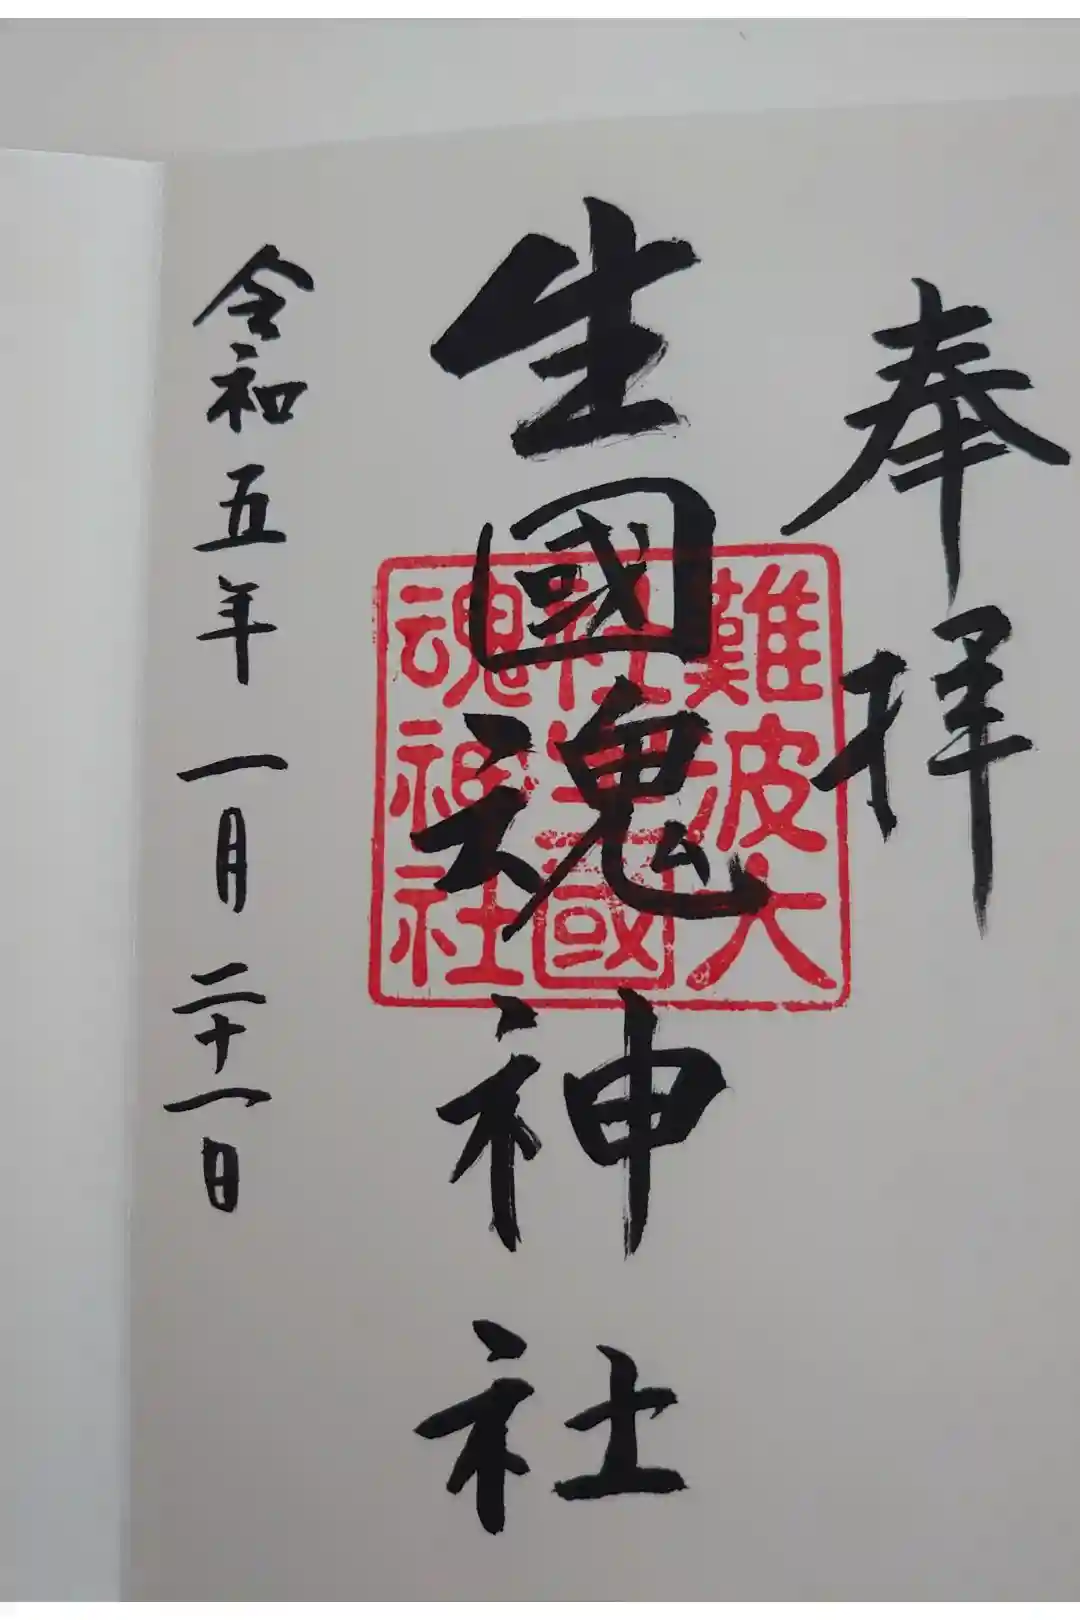 奉拝
生國魂神社
難波大
社生國
魂神社
令和五年一月二十一日